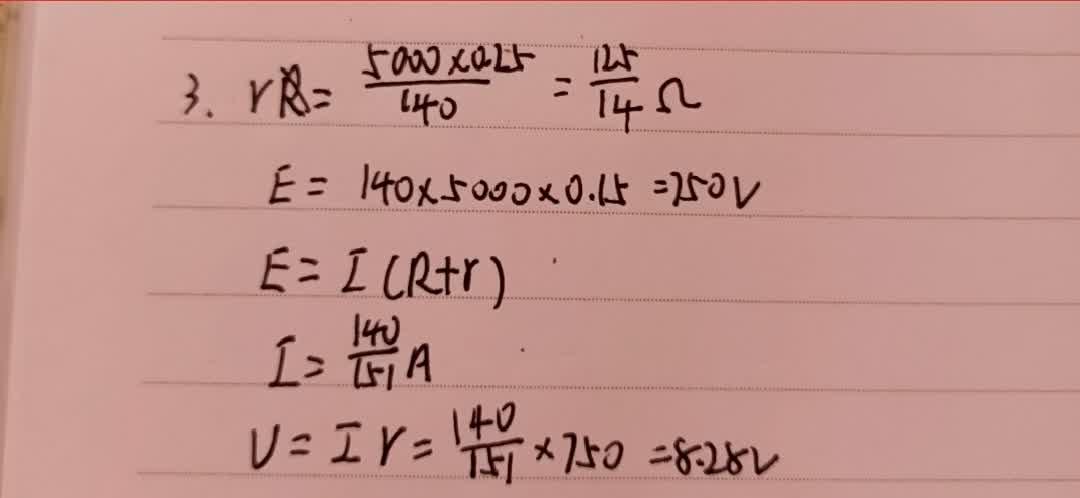 3. r = \frac{5000×0.25}{140} = \frac{125}{14} Ω
E = 140×5000×0.15 = 750V
E = I (R+r)
I = \frac{140}{151} A
U = I r = \frac{140}{151} × 750 = 8.28V